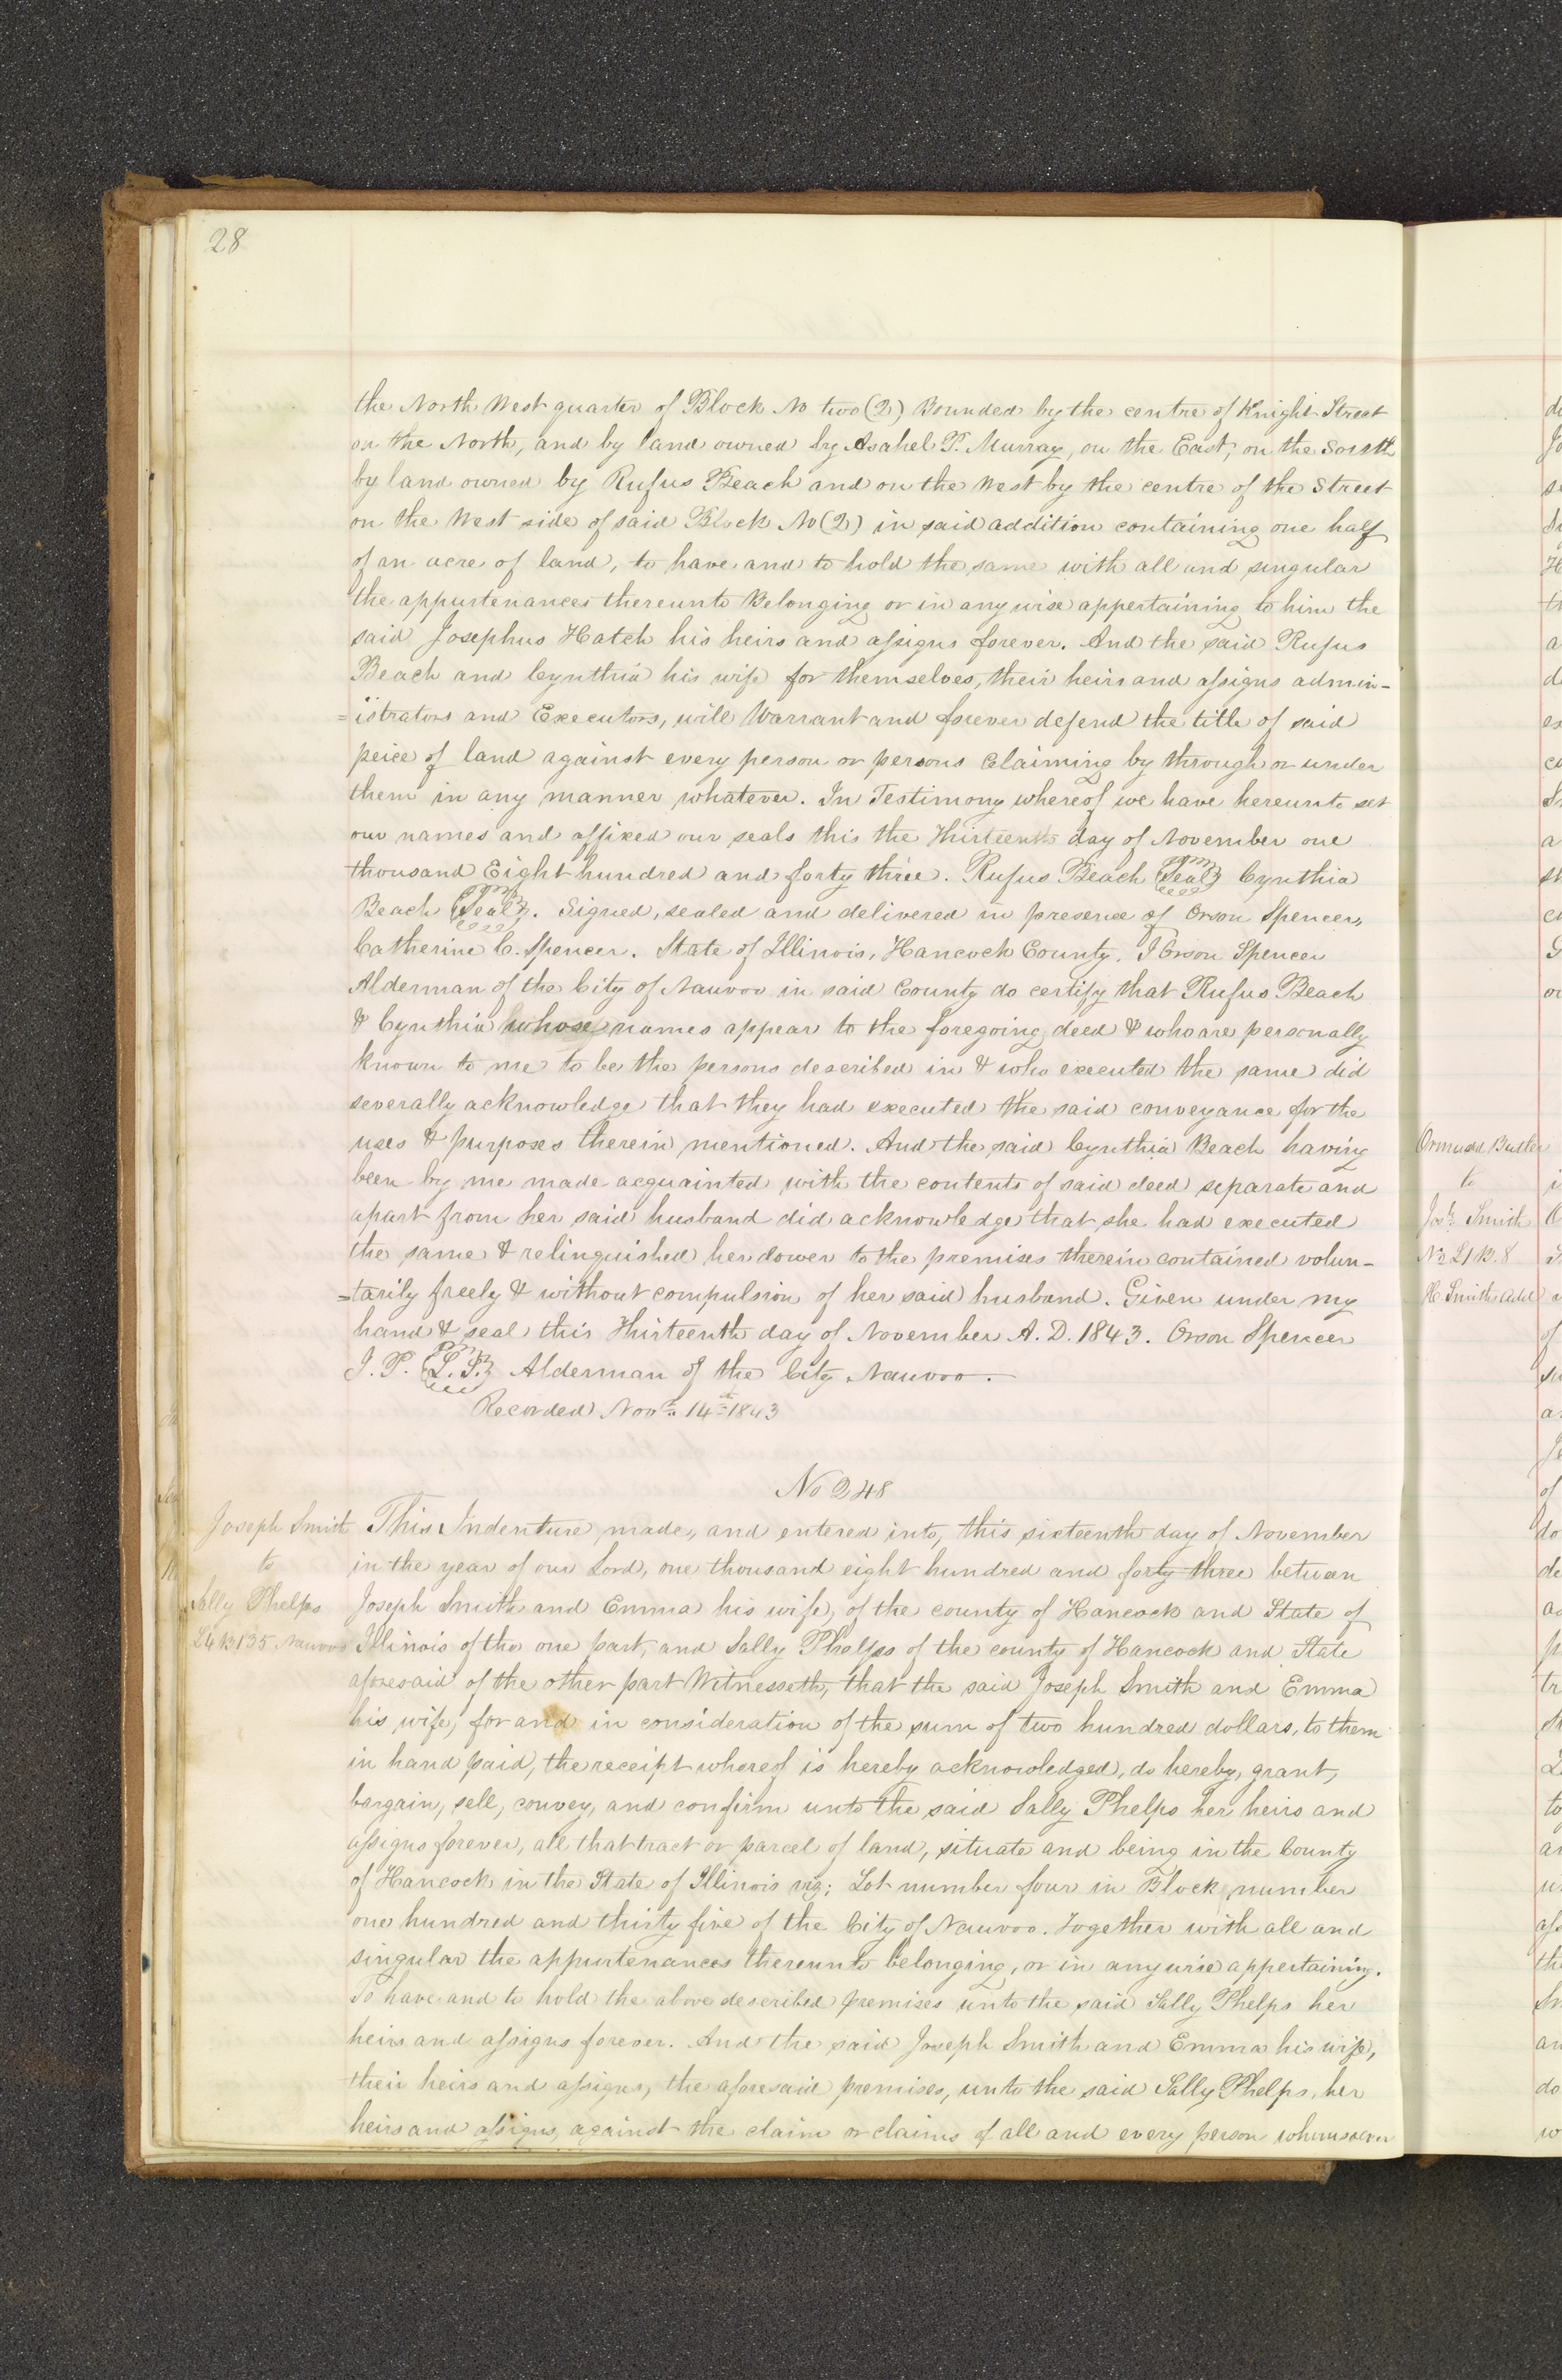 28
the North West quarter of Block No two (2) Bounded by the centre of Knight Street
on the North, and by land owned by Asahel P. Murray, on the East, on the South
by land owned by Rufus Beach and on the West by the centre of the Street
on the West side of said Block No (2) in said addition containing one half
of an acre of land, to have and to hold the same with all and singular
the appurtenances thereunto Belonging or in any wise appertaining to him the
said Josephus Hatch his heirs and assigns forever. And the said Rufus
Beach and Cynthia his wife for themselves, their heirs and assigns admin-
=istrators and Executors, will Warrant and forever defend the title of said
peice of land against every person or persons Claiming by through or under
them in any manner whatever. In Testimony whereof we have hereunto set
our names and affixed our seals this the Thirteenth day of November one
thousand Eight hundred and forty three. Rufus Beach Seal Cynthia
Beach Seal. Signed, sealed and delivered in presence of Orson Spencer,
Catherine C. Spencer. State of Illinois, Hancock County. I Orson Spencer
Alderman of the City of Nauvoo in said County do certify that Rufus Beach
& Cynthia whose names appear to the foregoing deed & who are personally
known to me to be the persons described in & who executed the same did
severally acknowledge that they had executed the said conveyance for the
uses & purposes therein mentioned. And the said Cynthia Beach having
been by me made acquainted with the contents of said deed separate and
apart from her said husband did acknowledge that she had executed
the same & relinquished her dower to the premises therein contained volun-
=tarily freely & without compulsion of her said husband. Given under my
hand & seal this Thirteenth day of November A.D. 1843. Orson Spencer
J.P. L.S. Alderman of the City Nauvoo.
Recorded Novr. 14th 1843
No 248
Joseph Smith
to
Sally Phelps
L4 B135 Nauvoo
This Indenture made, and entered into, this sixteenth day of November
in the year of our Lord, one thousand eight hundred and forty three between
Joseph Smith and Emma his wife, of the county of Hancock and State of
Illinois of the one part, and Sally Phelps of the county of Hancock and State
aforesaid of the other part Witnesseth, that the said Joseph Smith and Emma
his wife, for and in consideration of the sum of two hundred dollars, to them
in hand paid, the receipt whereof is hereby acknowledged, do hereby, grant,
bargain, sell, convey, and confirm unto the said Sally Phelps her heirs and
assigns forever, all that tract or parcel of land, situate and being in the County
of Hancock in the State of Illinois viz; Lot number four in Block number
one hundred and thirty five of the City of Nauvoo. Together with all and
singular the appurtenances thereunto belonging, or in any wise appertaining.
To have and to hold the above described premises unto the said Sally Phelps her
heirs and assigns forever. And the said Joseph Smith and Emma his wife,
their heirs and assigns, the aforesaid premises, unto the said Sally Phelps, her
heirs and assigns, against the claim or claims of all and every person whomsoever
Butler
to
Josh. Smith
No L1 B.8
H. Smith Add